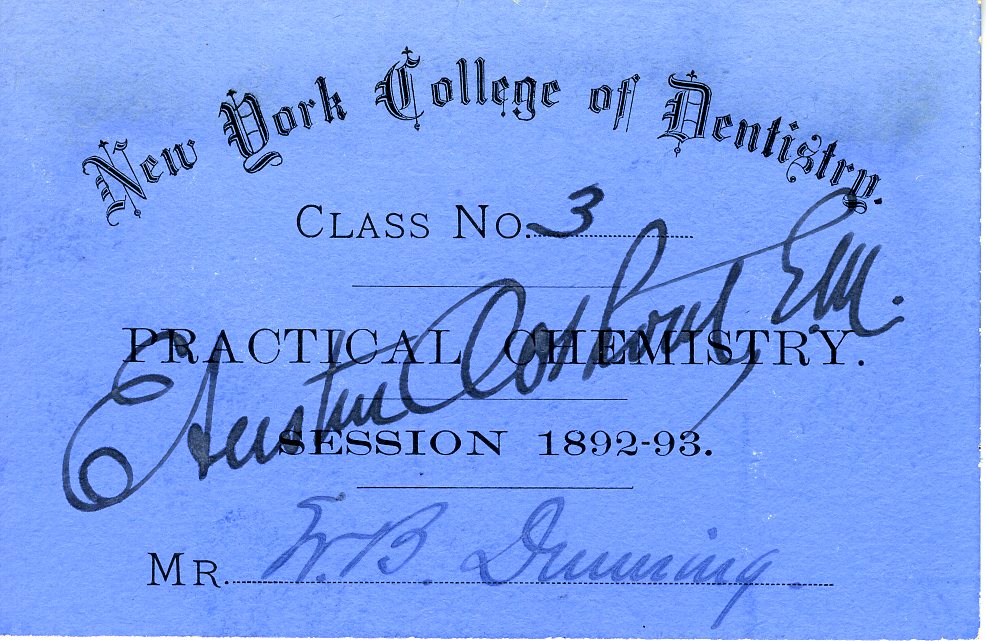 New York College of Dentistry.
CLASS No. 3
PRACTICAL CHEMISTRY.
E. Austin Oothout E.M.
SESSION 1892-93.
MR. W. B. Dunning.